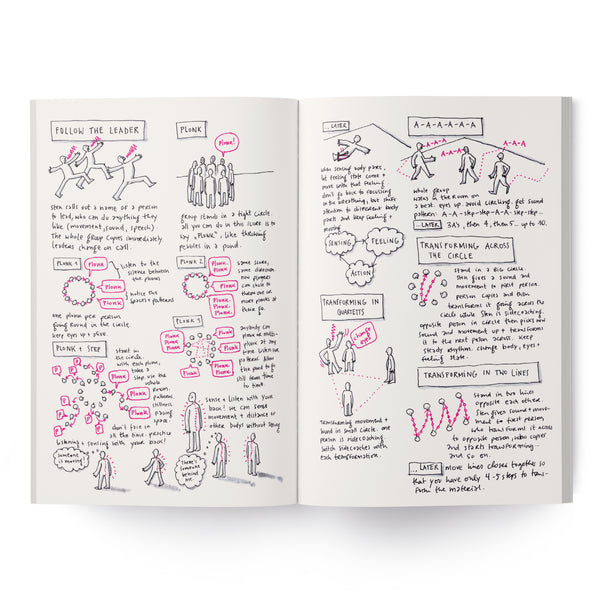 FOLLOW THE LEADER
Sten calls out a name or a person
to lead, who can do anything they
like (movement, sound, speech)
The whole group copies immediately
leaders change on call.
PLONK
Plonk!
group stands in a tight circle
all you can do in this score is to
say "PLONK", like throwing
pebbles in a pond.
PLONK 1
listen to the
silence between
the phones
Plonk
Plonk
Plonk
notice the
spaces + patterns
one plonk per person
going round in the circle.
keep eyes + glue
PLONK 2
Plonk
Plonk
Plonk
Plonk.
Plonk.
Plonk.
some score,
some direction
now players
can chose to
throw one or
more plonks at
their go.
PLONK 3
Plonk
Plonk.
Plonk.
Plonk.
Plonk.
Plonk
Plonk
Plonk
anybody can
plonk at any
time. Listen as
you plonk. Allow
the pond to go
still from time
to time
PLONK + STEP
start in
the circle.
with each plonk,
take a
step via the
whole
Plonk
Plonk
Plonk
Plonk
rhythm
patterns
stillness
pacing
space.
P
P
P
P
P
P
P
don't face in
all the time. practice
listening + sensing with your back!
sense + listen with your
back! we can sense
movement + distance to
other bodys without seeing
Someone
is moving
There's
Someone
behind
me.
... LATER
when sensing body parts,
let feeling state come +
move with that feeling
don't go back to focussing
on the breathing, but shift
attention to different body
parts and keep feeling +
moving
SENSING
FEELING
ACTION
A-A-A-A-A-A
A-A-A
A-A-A
A-A-A
whole group
walks in the room on
a beat. eyes up avoid circling. get sound
pattern: A-A-step-step-A-A-step-step...
... LATER 3A's, then 4, then 5... up to 10.
TRANSFORMING ACROSS
THE CIRCLE
stand in a big circle.
Sten gives a sound and
movement to first person.
person copies and then
transforms it going across the
circle while Sten is sidecoaching.
opposite person in circle then picks up
sound and movement up + transforms
it to the next person across. keep
steady rhythm. change body, eyes +
feeling state.
TRANSFORMING IN
QUARTETTS
change
eyes!
Transforming movement +
sound in small circle. one
person is sidecoaching
switch sidecoaches with
each transformation.
TRANSFORMING IN TWO LINES
stand in two lines
opposite each other.
Sten gives sound + move-
ment to first person,
who transforms it across
to opposite person, who copies
and starts transforming
and so on.
... LATER move lines closer together so
that you have only 4-5 steps to trans-
form the material.